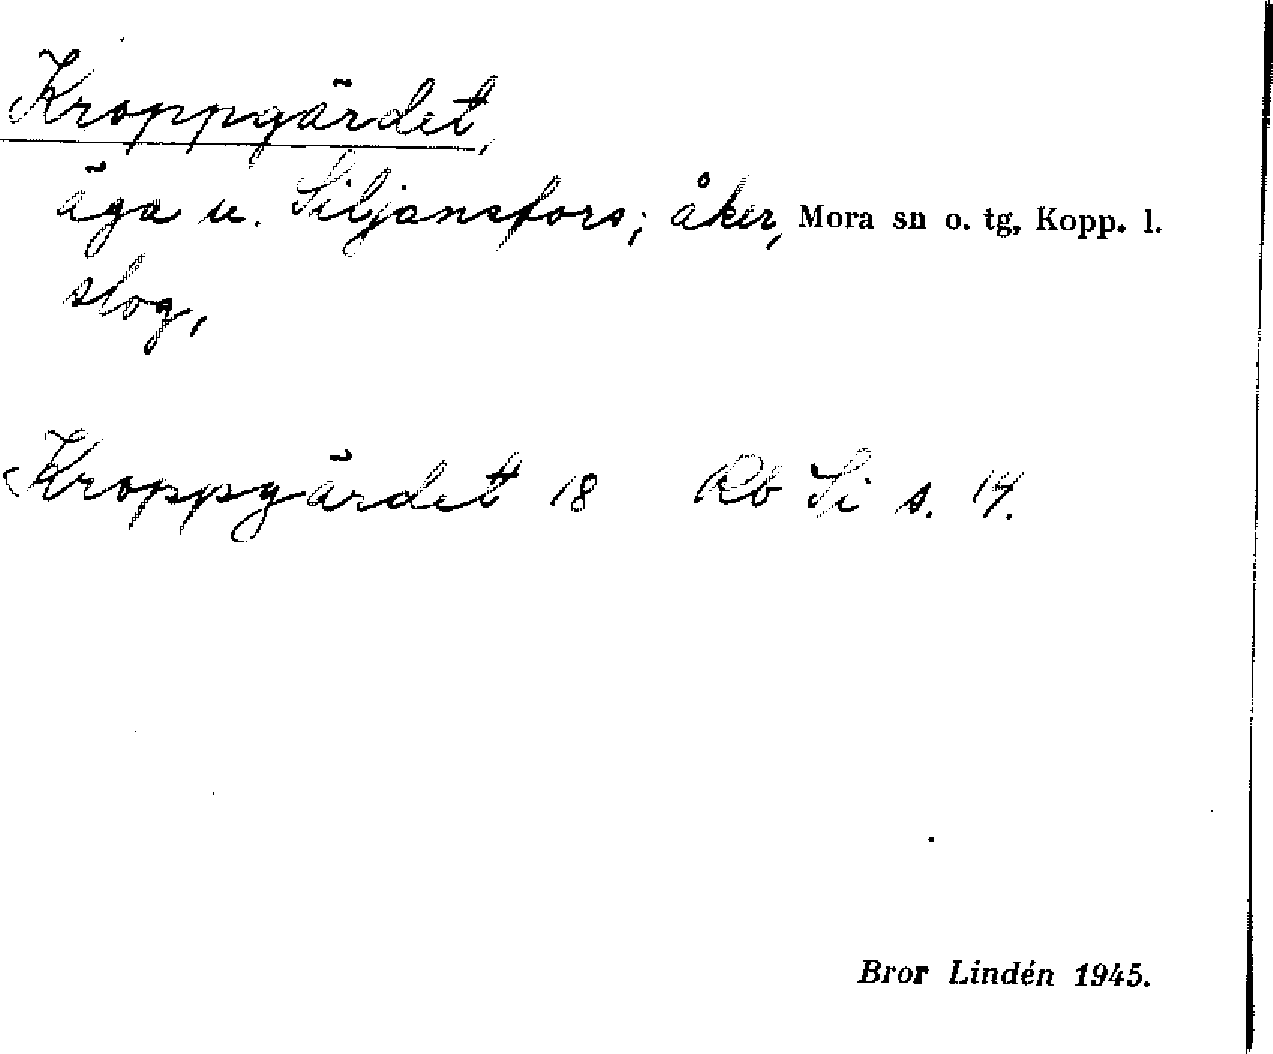 Kroppgärdet,
äga u. Siljansfors; åker, Mora sn o. tg, Kopp. l.
slog,
Kroppgärdet 18 Rb Si s. 14.
Bror Lindén 1945.